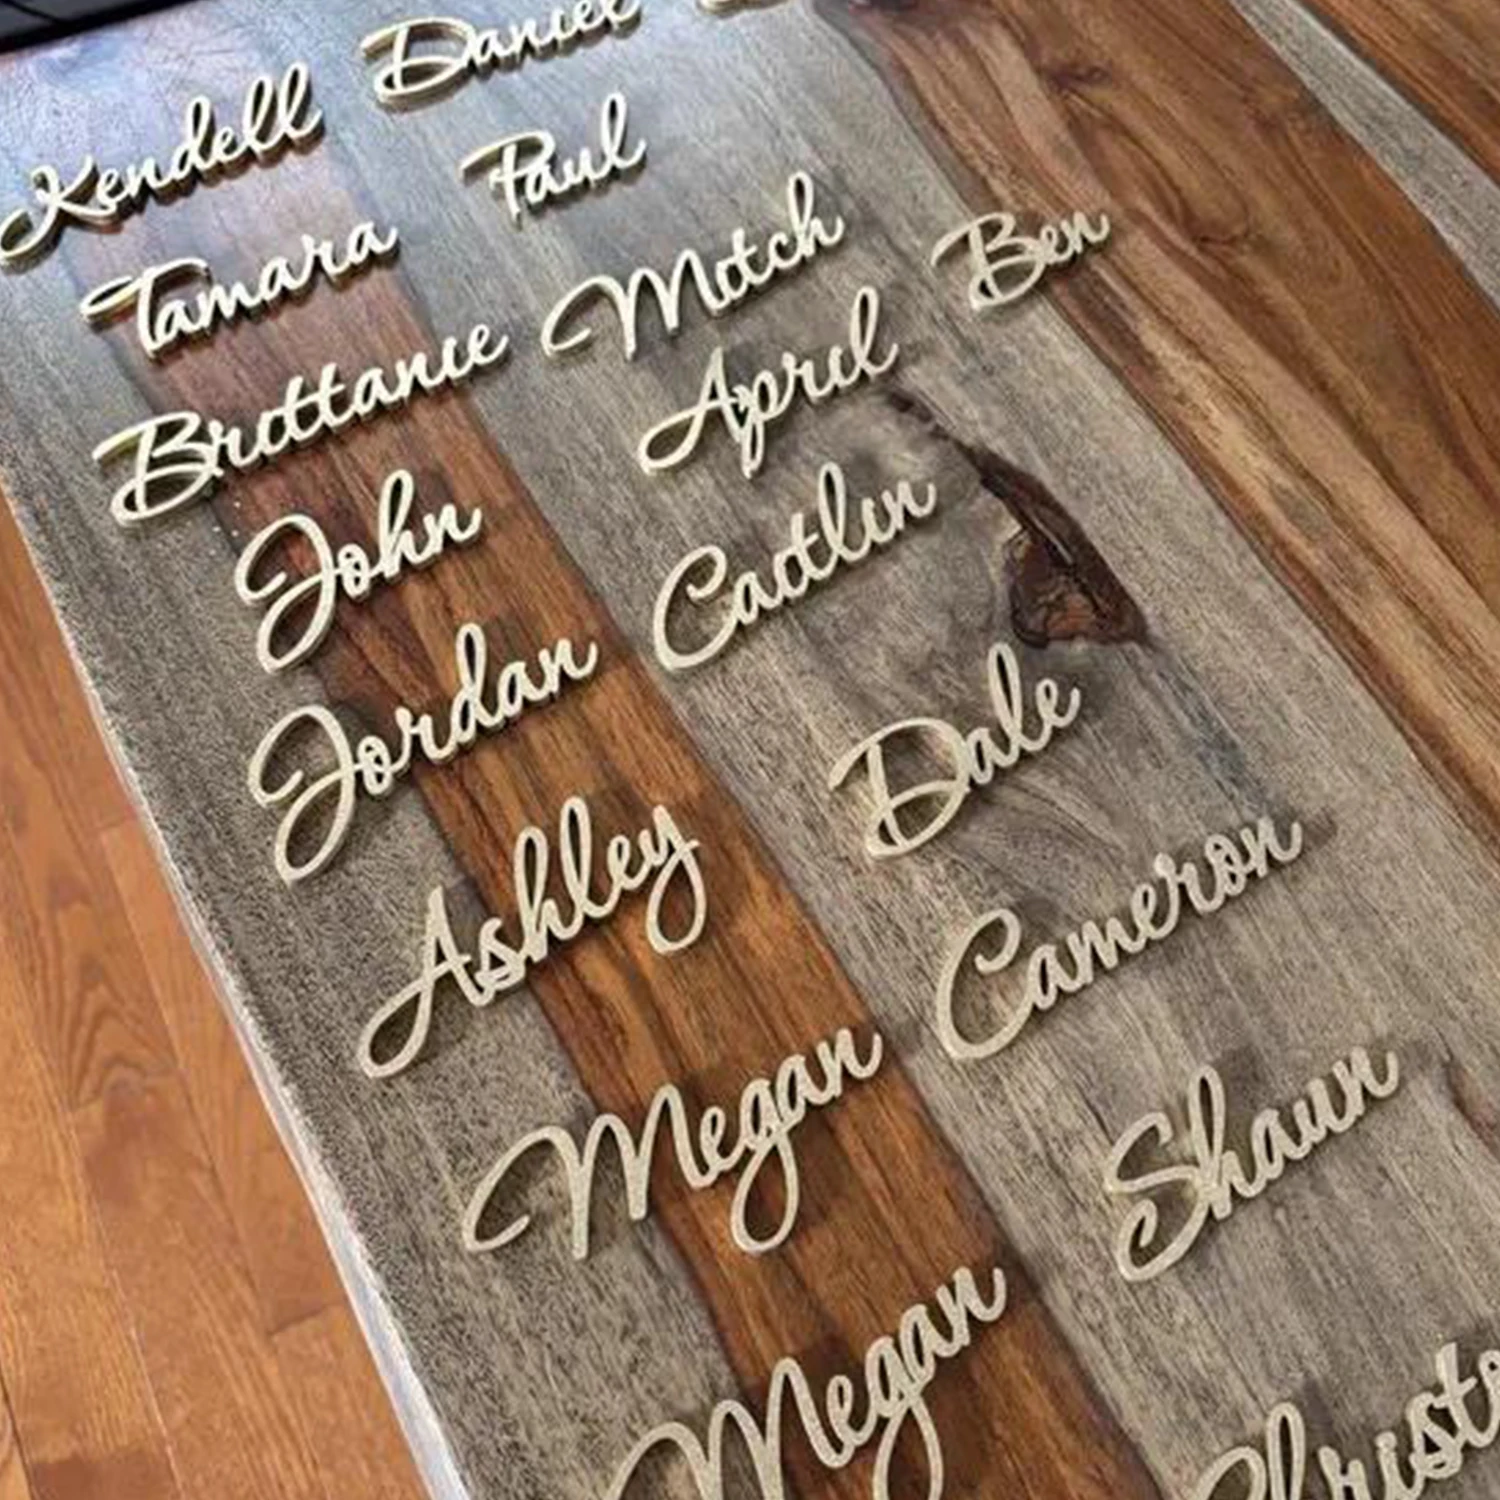 Kendell
Daniel
Tamara
Paul
Brittanie
Mitch
Ben
John
April
Jordan
Caitlin
Ashley
Dale
Megan
Cameron
Megan
Shaun